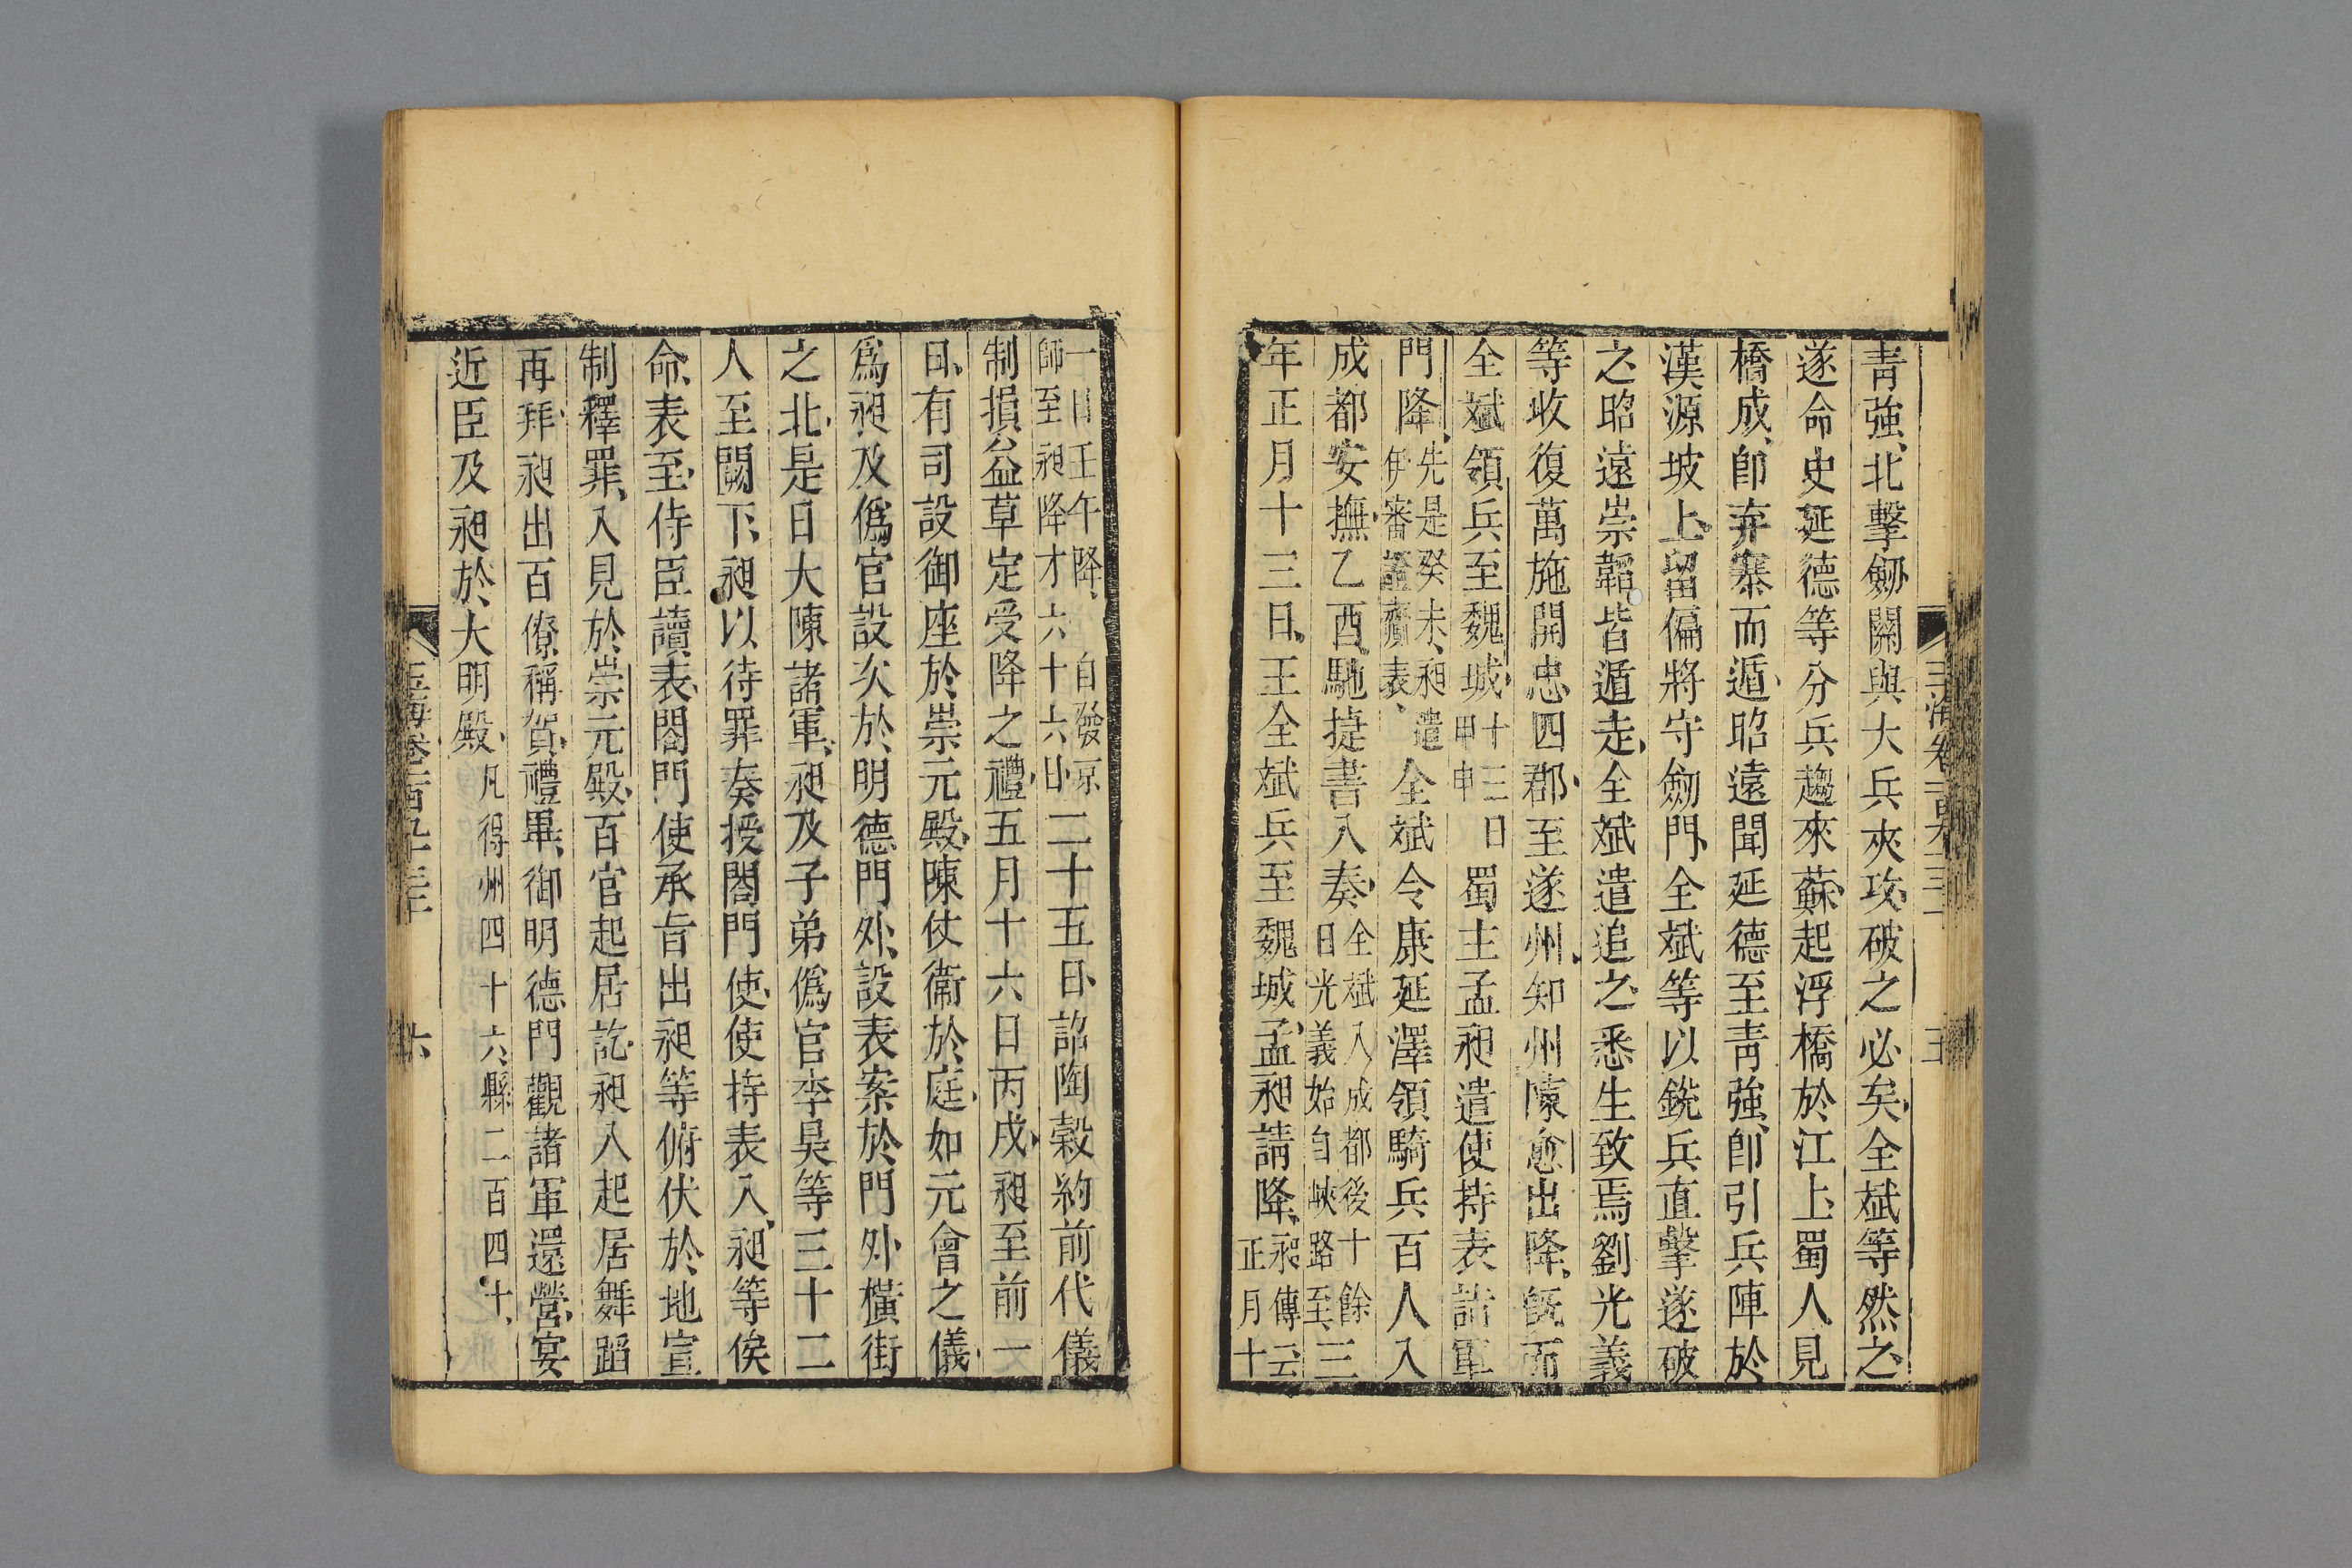 青強北擊劒關與大兵夾攻破之必矣全斌等然之
遂命史延德等分兵趨來蘇起浮橋於江上蜀人見
橋成卽弃寨而遁昭遠聞延德至青強卽引兵陣於
漢源坡上留偏將守劒門全斌等以銳兵直擊遂破
之昭遠崇韜皆遁走全斌遣追之悉生致焉劉光義
等收復萬施開忠四郡至遂州知州陳愈出降旣而
全斌領兵至魏城十三日甲申蜀主孟昶遣使持表詣軍
門降先是癸未昶遣伊審徵齎表全斌令康延澤領騎兵百人入
成都安撫乙酉馳捷書入奏全斌入成都後十餘日光義始自峽路至三
年正月十三日王全斌兵至魏城孟昶請降昶傳云正月十
一日壬午降自發京師至昶降才六十六日二十五日詔陶穀約前代儀
制損益草定受降之禮五月十六日丙戌昶至前一
日有司設御座於崇元殿陳仗衞於庭如元會之儀
爲昶及僞官設次於明德門外設表案於門外橫街
之北是日大陳諸軍昶及子弟僞官李昊等三十二
人至闕下昶以待罪奏授閤門使使持表入昶等俟
命表至侍臣讀表閤門使承旨出昶等俯伏於地宣
制釋罪入見於崇元殿百官起居訖昶入起居舞蹈
再拜昶出百僚稱賀禮畢御明德門觀諸軍還營宴
近臣及昶於大明殿凡得州四十六縣二百四十